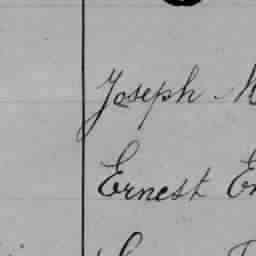 Joseph M
Ernest E